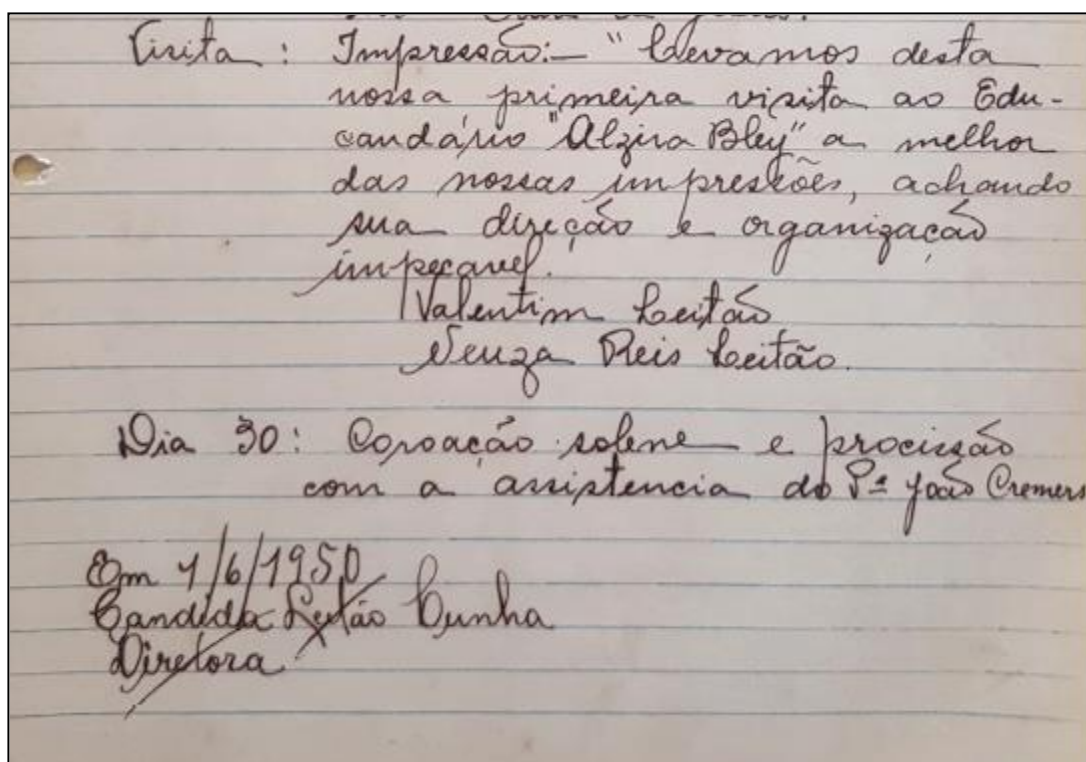 Visita: Impressão:- "Levamos desta
nossa primeira visita ao Edu-
candário "Alzira Bley" a melhor
das nossas impressões, achando
sua direção e organização
impecavel.
Valentim Leitão
Neuza Reis Leitão.
Dia 30: Coroação solene e procissão
com a assistencia do Pe João Cremers
Em 1/6/1950
Candida Leitão Cunha
Diretora